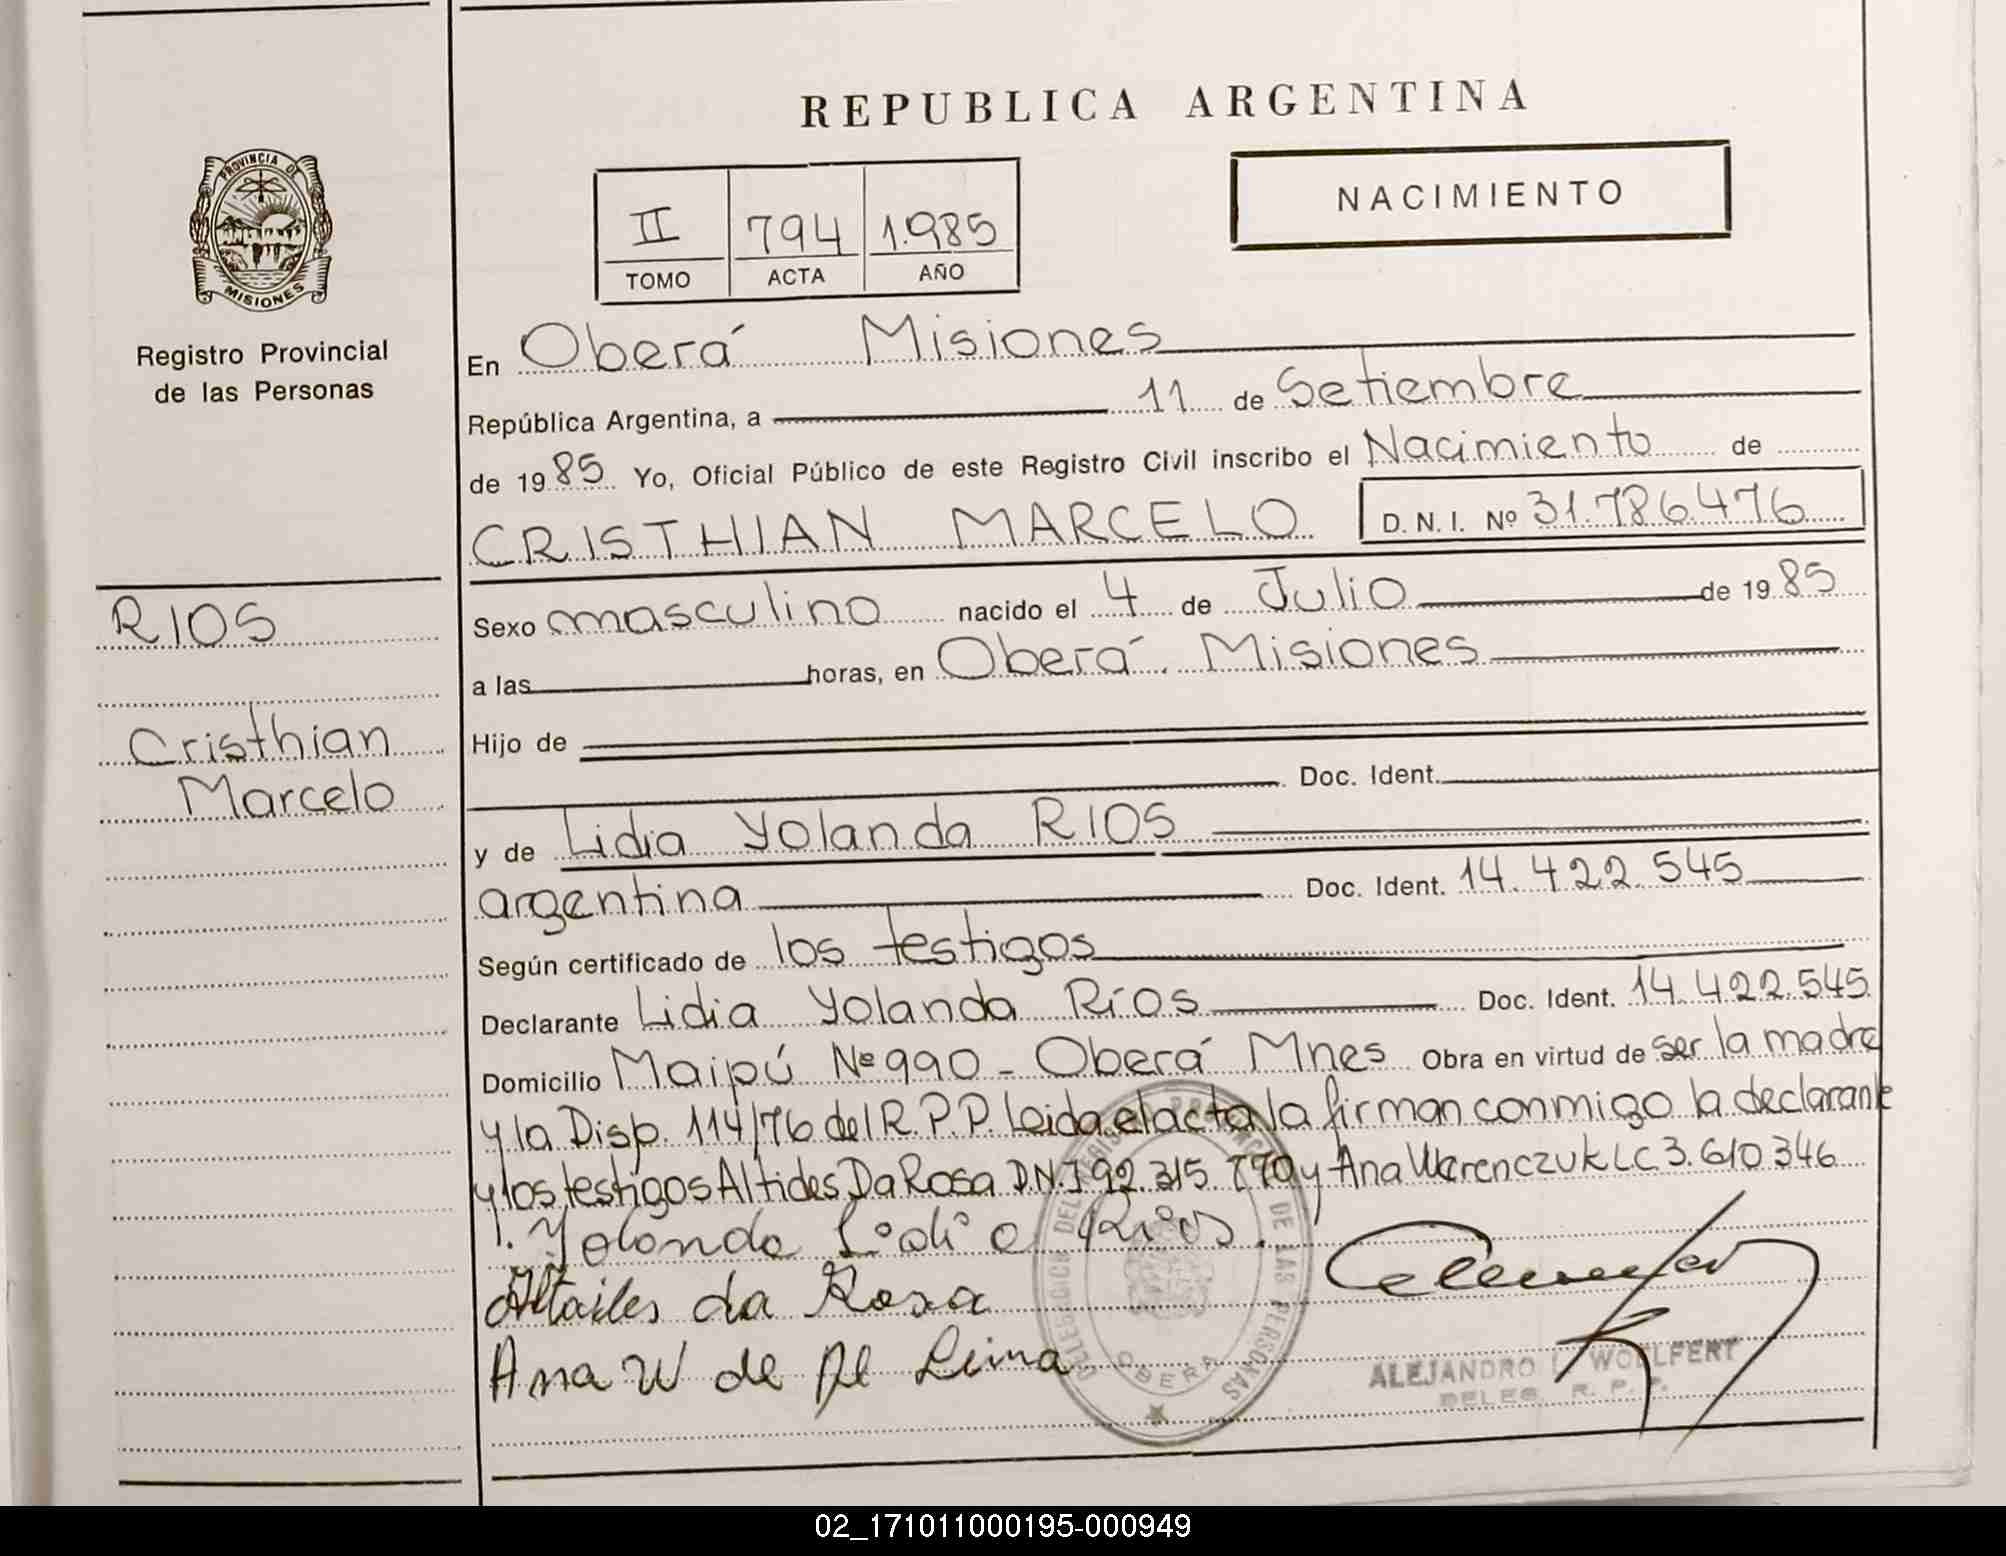 REPUBLICA ARGENTINA
PROVINCIA DE
MISIONES
Registro Provincial
de las Personas
II 794 1.985
TOMO ACTA AÑO
NACIMIENTO
En Oberá Misiones
República Argentina, a 11 de Setiembre
de 1985 Yo, Oficial Público de este Registro Civil inscribo el Nacimiento de
CRISTHIAN MARCELO D. N. I. Nº 31.786.476
RIOS
Cristhian
Marcelo
Sexo masculino nacido el 4 de Julio de 1985
a las horas, en Oberá Misiones
Hijo de
Doc. Ident.
y de Lidia Yolanda RIOS
argentina Doc. Ident. 14.422.545
Según certificado de los testigos
Declarante Lidia Yolanda Ríos Doc. Ident. 14.422.545
Domicilio Maipú Nº 990 - Oberá Mnes Obra en virtud de ser la madre
y la Disp. 114/76 del R.P.P. Leida el acta la firman conmigo la declarante
y los testigos Altides Da Rosa D.N.I 92.315.770 y Ana Warenczuk LC 3.610.346
Yolanda Lidia Rios.
Altaides da Rosa
Ana W de de Lima
DELEGACION DEL REGISTRO PROVINCIAL DE LAS PERSONAS
OBERA
ALEJANDRO L. WOOLFERT
DELEG. R. P. P.
02_171011000195-000949